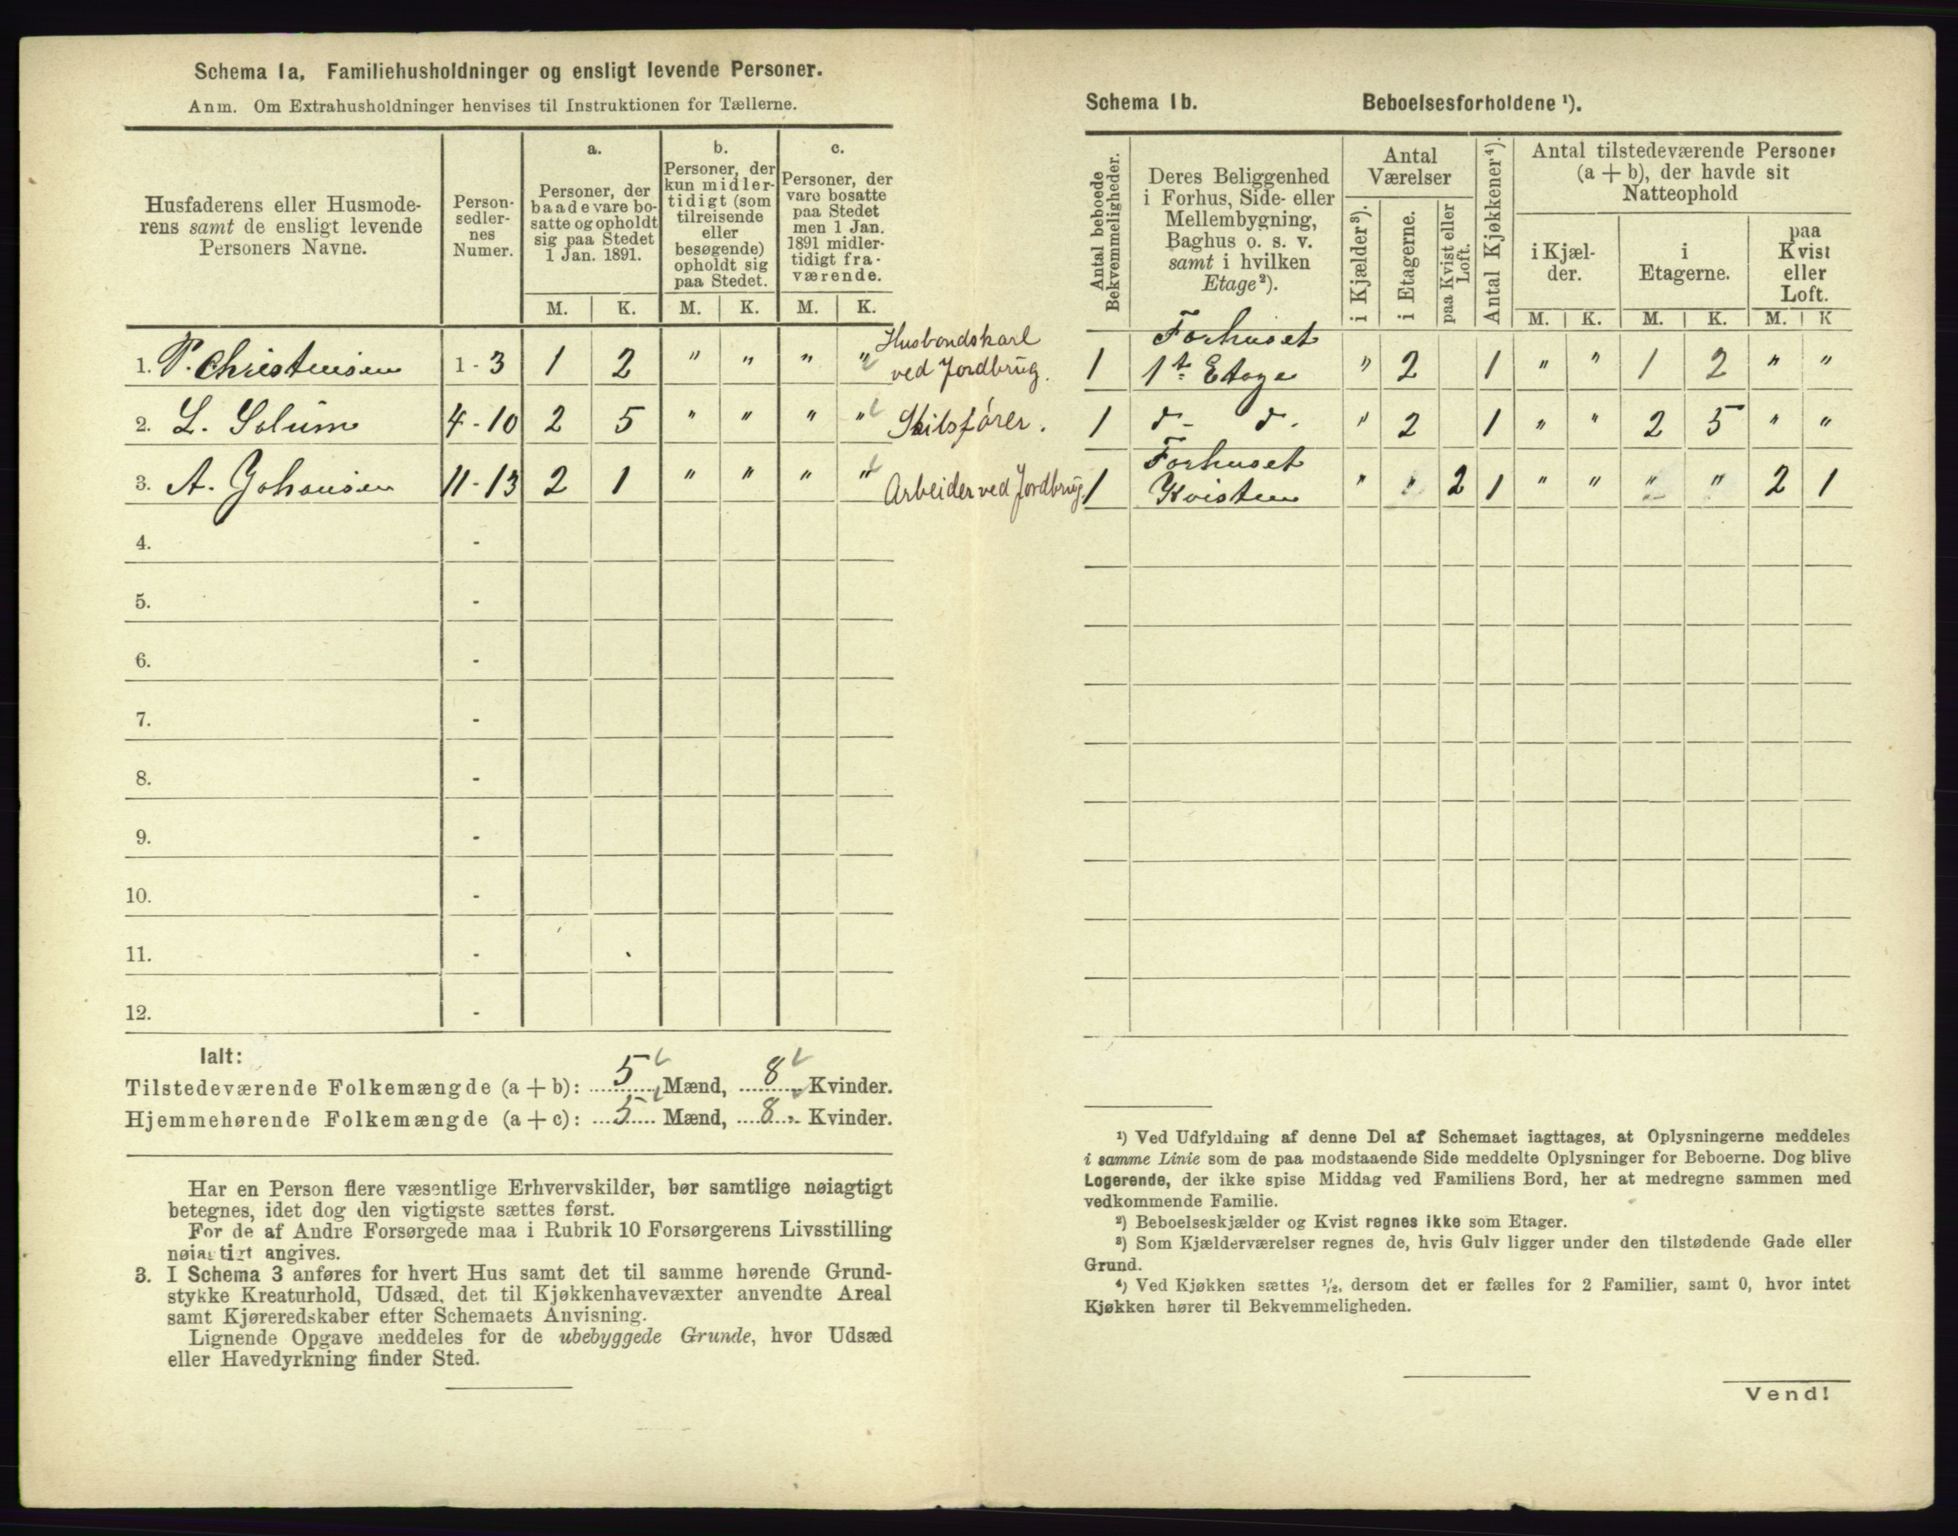 Schema 1a, Familiehusholdninger og ensligt levende Personer.
Anm. Om Extrahusholdninger henvises til Instruktionen for Tællerne.
Husfaderens eller Husmoderens samt de ensligt levende Personers Navne.
Personsedlernes Numer.
a. Personer, der baade vare bosatte og opholdt sig paa Stedet 1 Jan. 1891.
b. Personer, der kun midlertidigt (som tilreisende eller besøgende) opholdt sig paa Stedet.
c. Personer, der vare bosatte paa Stedet men 1 Jan. 1891 midlertidigt fraværende.
M. K. M. K. M. K.
1. P. Christensen 1 - 3 1 2 " " " " Husbondskarl ved Jordbrug.
2. L. Solum 4 - 10 2 5 " " " " Skilsfører.
3. A. Johansen 11 - 13 2 1 " " " " Arbeider ved Jordbrug
4. -
5. -
6. -
7. -
8. -
9. -
10. -
11. -
12. -
Ialt:
Tilstedeværende Folkemængde (a + b): 5 Mænd, 8 Kvinder.
Hjemmehørende Folkemængde (a + c): 5 Mænd, 8 Kvinder.
Har en Person flere væsentlige Erhvervskilder, bør samtlige nøiagtigt
betegnes, idet dog den vigtigste sættes først.
For de af Andre Forsørgede maa i Rubrik 10 Forsørgerens Livsstilling
nøiagtigt angives.
3. I Schema 3 anføres for hvert Hus samt det til samme hørende Grund-
stykke Kreaturhold, Udsæd, det til Kjøkkenhavevæxter anvendte Areal
samt Kjøreredskaber efter Schemaets Anvisning.
Lignende Opgave meddeles for de ubebyggede Grunde, hvor Udsæd
eller Havedyrkning finder Sted.
Schema 1b. Beboelsesforholdene ¹).
Antal beboede Bekvemmeligheder.
Deres Beliggenhed i Forhus, Side- eller Mellembygning, Baghus o. s. v. samt i hvilken Etage²).
Antal Værelser
i Kjælder³).
i Etagerne.
paa Kvist eller Loft.
Antal Kjøkkener⁴).
Antal tilstedeværende Personer (a + b), der havde sit Natteophold
i Kjælder.
i Etagerne.
paa Kvist eller Loft.
M. K. M. K. M. K
1 Forhuset 1te Etage " 2 1 " " 1 2 " "
1 d - d - " 2 1 " " 2 5 " "
1 Forhuset Kvisten " " 2 1 " " " " 2 1
¹) Ved Udfyldning af denne Del af Schemaet iagttages, at Oplysningerne meddeles
i samme Linie som de paa modstaaende Side meddelte Oplysninger for Beboerne. Dog blive
Logerende, der ikke spise Middag ved Familiens Bord, her at medregne sammen med
vedkommende Familie.
²) Beboelseskjælder og Kvist regnes ikke som Etager.
³) Som Kjælderværelser regnes de, hvis Gulv ligger under den tilstødende Gade eller
Grund.
⁴) Ved Kjøkken sættes ½, dersom det er fælles for 2 Familier, samt 0, hvor intet
Kjøkken hører til Bekvemmeligheden.
Vend!